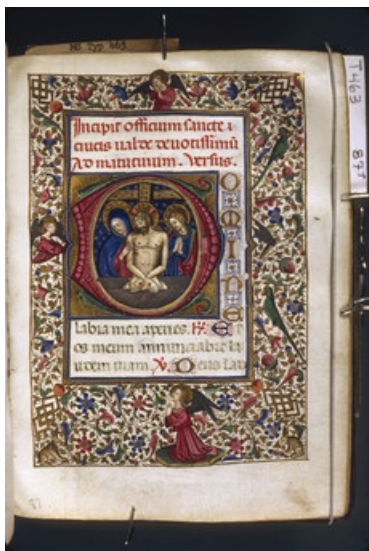 MS Typ 463
T463
87r
Incipit officium sancte
crucis ualde deuotissimū
Ad matutinum. Versus.
DOMINE
labia mea aperies. ℟. Et
os meum annunciabit la
udem tuam. ℣. Deus in ad